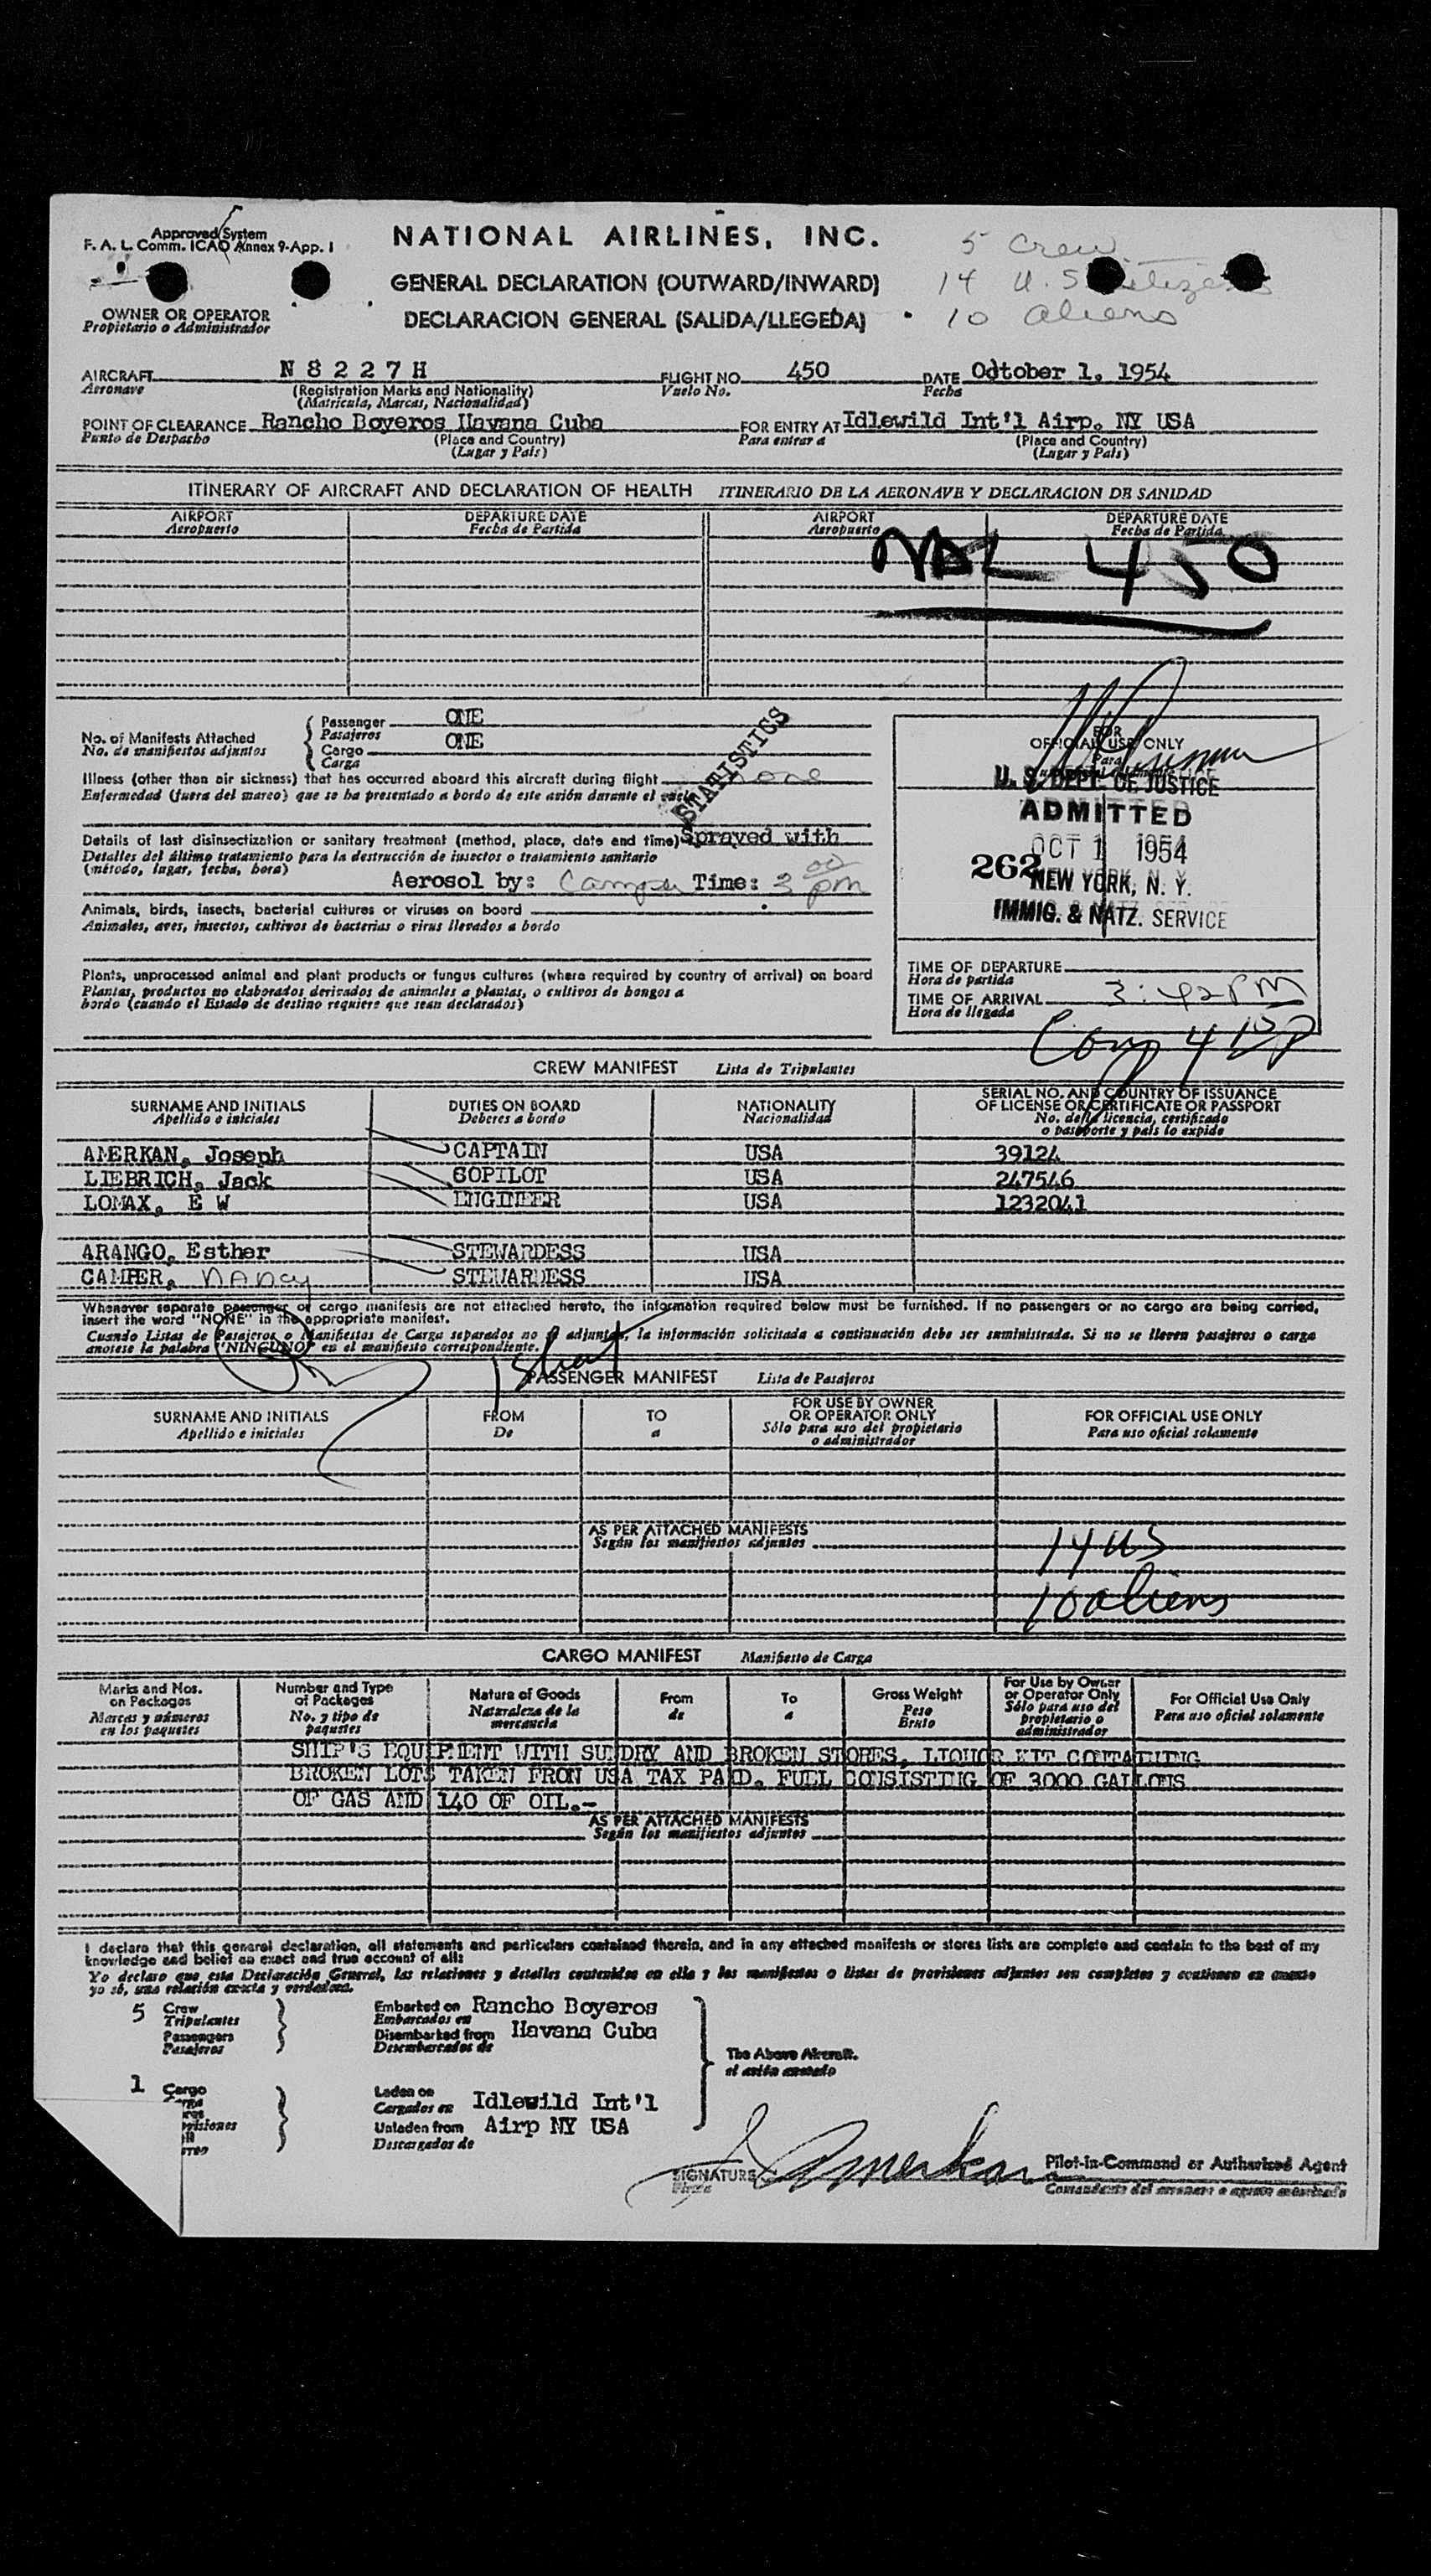 Approved System
F. A. L. Comm. ICAO Annex 9-App. 1
NATIONAL AIRLINES, INC.
5 Crew
GENERAL DECLARATION (OUTWARD/INWARD)
14 U.S. Citizens
OWNER OR OPERATOR
Propietario o Administrador
DECLARACION GENERAL (SALIDA/LLEGEDA)
10 aliens
AIRCRAFT N 8 2 2 7 H FLIGHT NO. 450 DATE Odtober 1, 1954
Aeronave (Registration Marks and Nationality) Vuelo No. Fecha
(Matricula, Marcas, Nacionalidad)
POINT OF CLEARANCE Rancho Boyeros Havana Cuba FOR ENTRY AT Idlewild Int'l Airp. NY USA
Punto de Despacho (Place and Country) Para entrar a (Place and Country)
(Lugar y Pais) (Lugar y Pais)
ITINERARY OF AIRCRAFT AND DECLARATION OF HEALTH ITINERARIO DE LA AERONAVE Y DECLARACION DE SANIDAD
AIRPORT DEPARTURE DATE AIRPORT DEPARTURE DATE
Aeropuerto Fecha de Partida Aeropuerto Fecha de Partida
NAL 450
No. of Manifests Attached
No. de manifiestos adjuntos
Passenger ONE
Pasajeros
Cargo ONE
Carga
STATISTICS
Illness (other than air sickness) that has occurred aboard this aircraft during flight none
Enfermedad (fuera del mareo) que se ha presentado a bordo de este avión durante el vuelo
Details of last disinsectization or sanitary treatment (method, place, date and time) Sprayed with
Detalles del último tratamiento para la destrucción de insectos o tratamiento sanitario
(método, lugar, fecha, hora)
Aerosol by: Camper Time: 3 00 pm
Animals, birds, insects, bacterial cultures or viruses on board
Animales, aves, insectos, cultivos de bacterias o virus llevados a bordo
Plants, unprocessed animal and plant products or fungus cultures (where required by country of arrival) on board
Plantas, productos no elaborados derivados de animales a plantas, o cultivos de hongos a
bordo (cuando el Estado de destino requiere que sean declarados)
FOR
OFFICIAL USE ONLY
Para
U. S. DEPT. OF JUSTICE
ADMITTED
OCT 1 1954
262 NEW YORK, N. Y.
IMMIG. & NATZ. SERVICE
TIME OF DEPARTURE
Hora de partida
TIME OF ARRIVAL 3:42 PM
Hora de llegada
CREW MANIFEST Lista de Tripulantes
SURNAME AND INITIALS DUTIES ON BOARD NATIONALITY SERIAL NO. AND COUNTRY OF ISSUANCE
OF LICENSE OR CERTIFICATE OR PASSPORT
Apellido e iniciales Deberes a bordo Nacionalidad No. de la licencia, certificado
o pasaporte y pais lo expide
AMERKAN, Joseph CAPTAIN USA 39124
LIEBRICH, Jack COPILOT USA 247546
LOMAX, E W ENGINEER USA 1232041
ARANGO, Esther STEWARDESS USA
CAMPER, Nancy STEWARDESS USA
Whenever separate passenger or cargo manifests are not attached hereto, the information required below must be furnished. If no passengers or no cargo are being carried,
insert the word "NONE" in the appropriate manifest.
Cuando Listas de Pasajeros o Manifiestos de Carga separados no se adjuntan, la información solicitada a continuación debe ser suministrada. Si no se lleven pasajeros o carga
anotese la palabra "NINGUNO" en el manifiesto correspondiente.
PASSENGER MANIFEST Lista de Pasajeros
SURNAME AND INITIALS FROM TO FOR USE BY OWNER
OR OPERATOR ONLY FOR OFFICIAL USE ONLY
Apellido e iniciales De a Sólo para uso del propietario
o administrador Para uso oficial solamente
AS PER ATTACHED MANIFESTS
Según los manifiestos adjuntos
14 US
10 aliens
CARGO MANIFEST Manifiesto de Carga
Marks and Nos.
on Packages
Marcas y números
en los paquetes
Number and Type
of Packages
No. y tipo de
paquetes
Nature of Goods
Naturaleza de la
mercancia
From
de
To
a
Gross Weight
Peso
Bruto
For Use by Owner
or Operator Only
Sólo para uso del
propietario o
administrador
For Official Use Only
Para uso oficial solamente
SHIP'S EQUIPMENT WITH SUNDRY AND BROKEN STORES, LIQUOR KIT CONTAINING
BROKEN LOTS TAKEN FRON USA TAX PAID. FUEL CONSISTING OF 3000 GALLONS
OF GAS AND 140 OF OIL.-
AS PER ATTACHED MANIFESTS
Según los manifiestos adjuntos
I declare that this general declaration, all statements and particulars contained therein, and in any attached manifests or stores lists are complete and contain to the best of my
knowledge and belief an exact and true account of all:
Yo declaro que esta Declaración General, las relaciones y detalles contenidos en ella y los manifiestos o listas de provisiones adjuntos son completos y contienen en cuanto
yo sé, una relación exacta y verdadera.
5 Crew
Tripulantes
Passengers
Pasajeros
Embarked on Rancho Boyeros
Embarcados en
Disembarked from Havana Cuba
Desembarcados de
The Above Aircraft.
el avión anotado
1 Cargo
Laden on
Cargados en Idlewild Int'l
Unladen from Airp NY USA
Descargados de
SIGNATURE J Amerkan
Firma
Pilot-in-Command or Authorized Agent